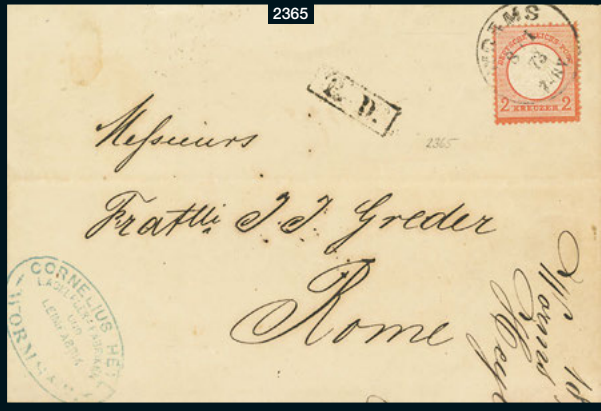 2365
WORMS
8 1
73
DEUTSCHE REICHS-POST
2 KREUZER 2
P. D.
2365
Messieurs
Fratelli J J Greder
Rome
CORNELIUS HEYL
WORMS
Worms
Heyl